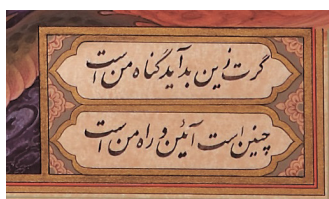 گرت زین بد آید گناه من است
چنین است آئین و راه من است